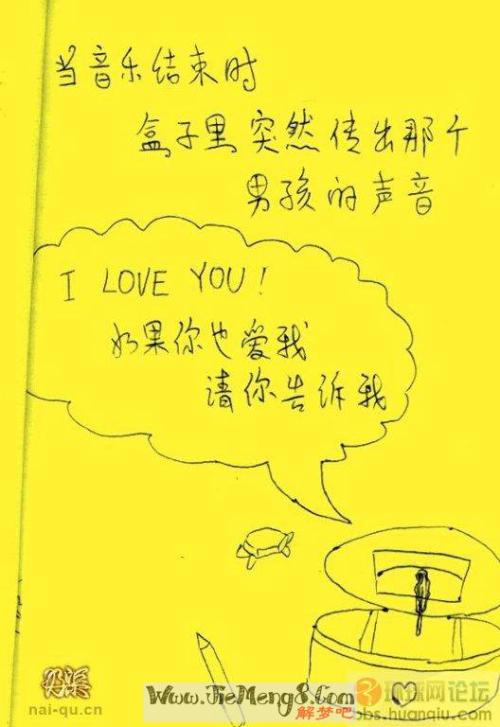 当音乐结束时
盒子里突然传出那个
男孩的声音
I LOVE YOU!
如果你也爱我
请你告诉我
nai-qu.cn
WWW.JieMeng8.Com
解梦吧
环球网论坛
bbs.huanqiu.com